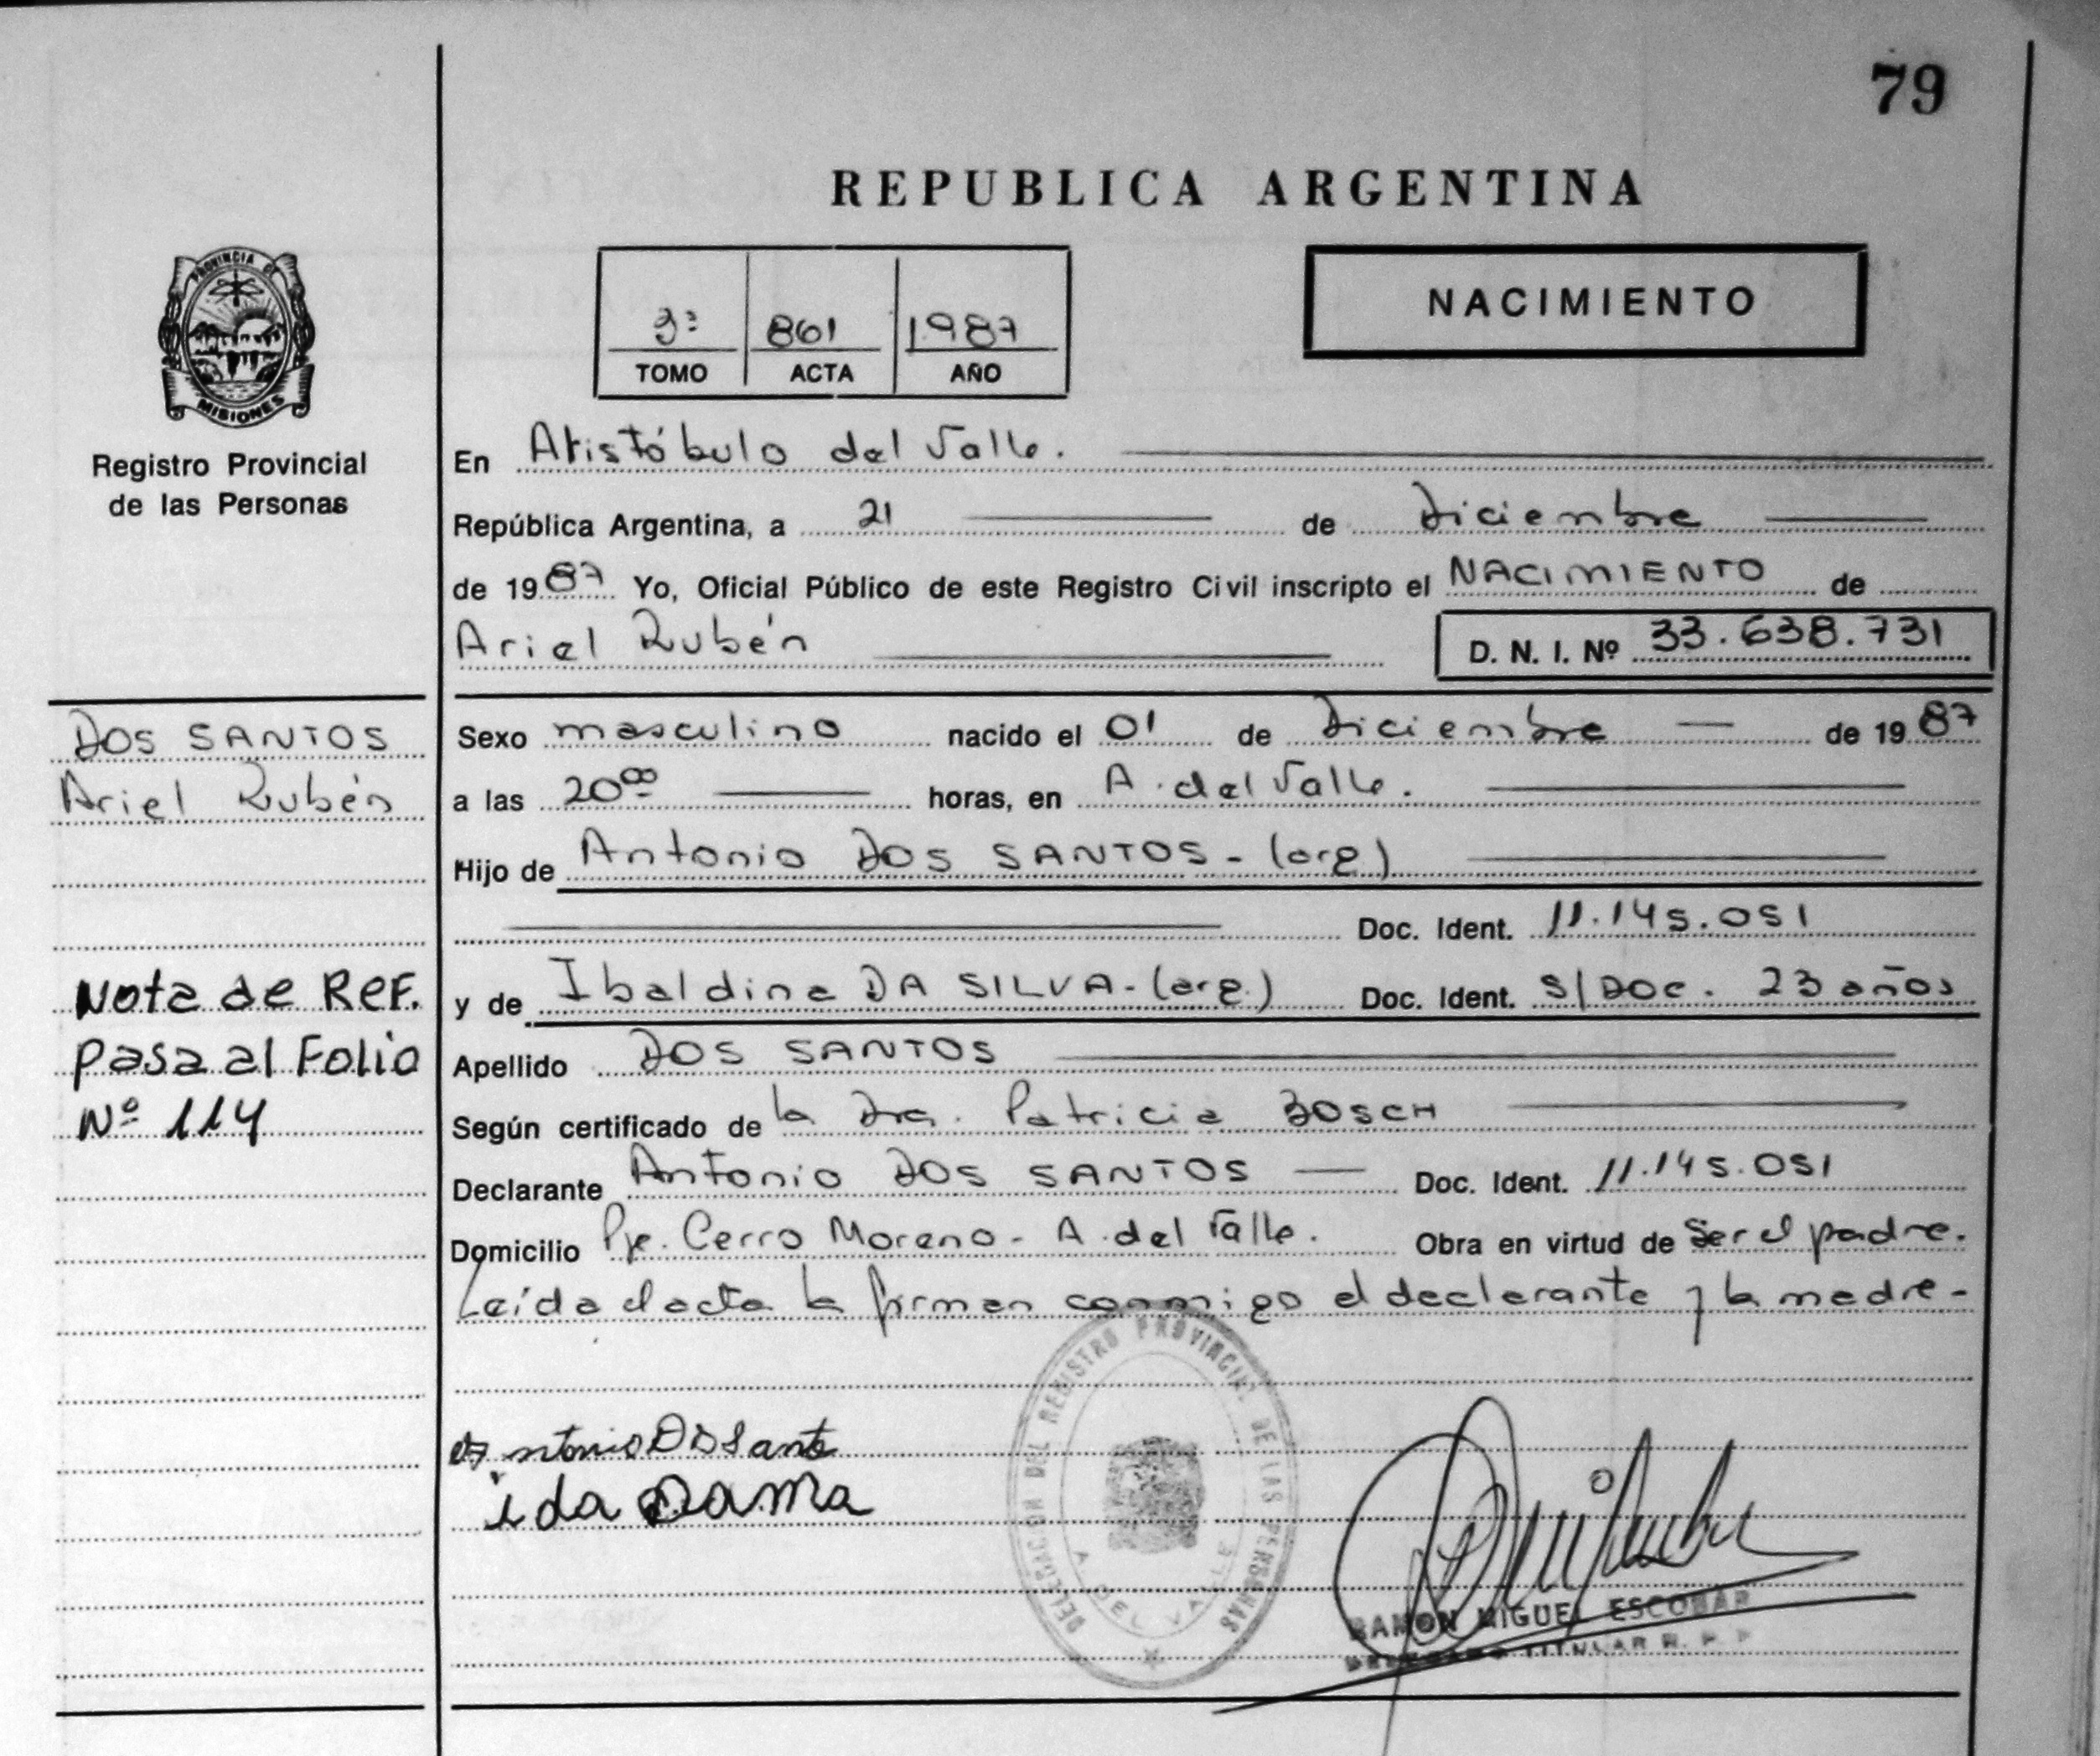 79
REPUBLICA ARGENTINA
NACIMIENTO
3º 861 1987
TOMO ACTA AÑO
PROVINCIA DE
MISIONES
Registro Provincial
de las Personas
En Aristóbulo del Valle.
República Argentina, a 21 de Diciembre
de 1987 Yo, Oficial Público de este Registro Civil inscripto el NACIMIENTO de
Ariel Rubén D. N. I. Nº 33.638.731
DOS SANTOS
Ariel Rubén
Nota de REF.
pasa al Folio
Nº 114
Sexo masculino nacido el 01 de Diciembre de 1987
a las 20⁰⁰ horas, en A. del Valle.
Hijo de Antonio DOS SANTOS - (arg)
Doc. Ident. 11.145.051
y de Ibaldina DA SILVA - (arg.) Doc. Ident. S/DOC. 23 años
Apellido DOS SANTOS
Según certificado de la Dra. Patricia BOSCH
Declarante Antonio DOS SANTOS Doc. Ident. 11.145.051
Domicilio Pje. Cerro Moreno - A. del Valle. Obra en virtud de ser el padre.
Leída el acta la firman conmigo el declarante y la madre -
DELEGACION DEL REGISTRO PROVINCIAL DE LAS PERSONAS
A. DEL VALLE
RAMON MIGUEL ESCOBAR
TITULAR R. P. P.